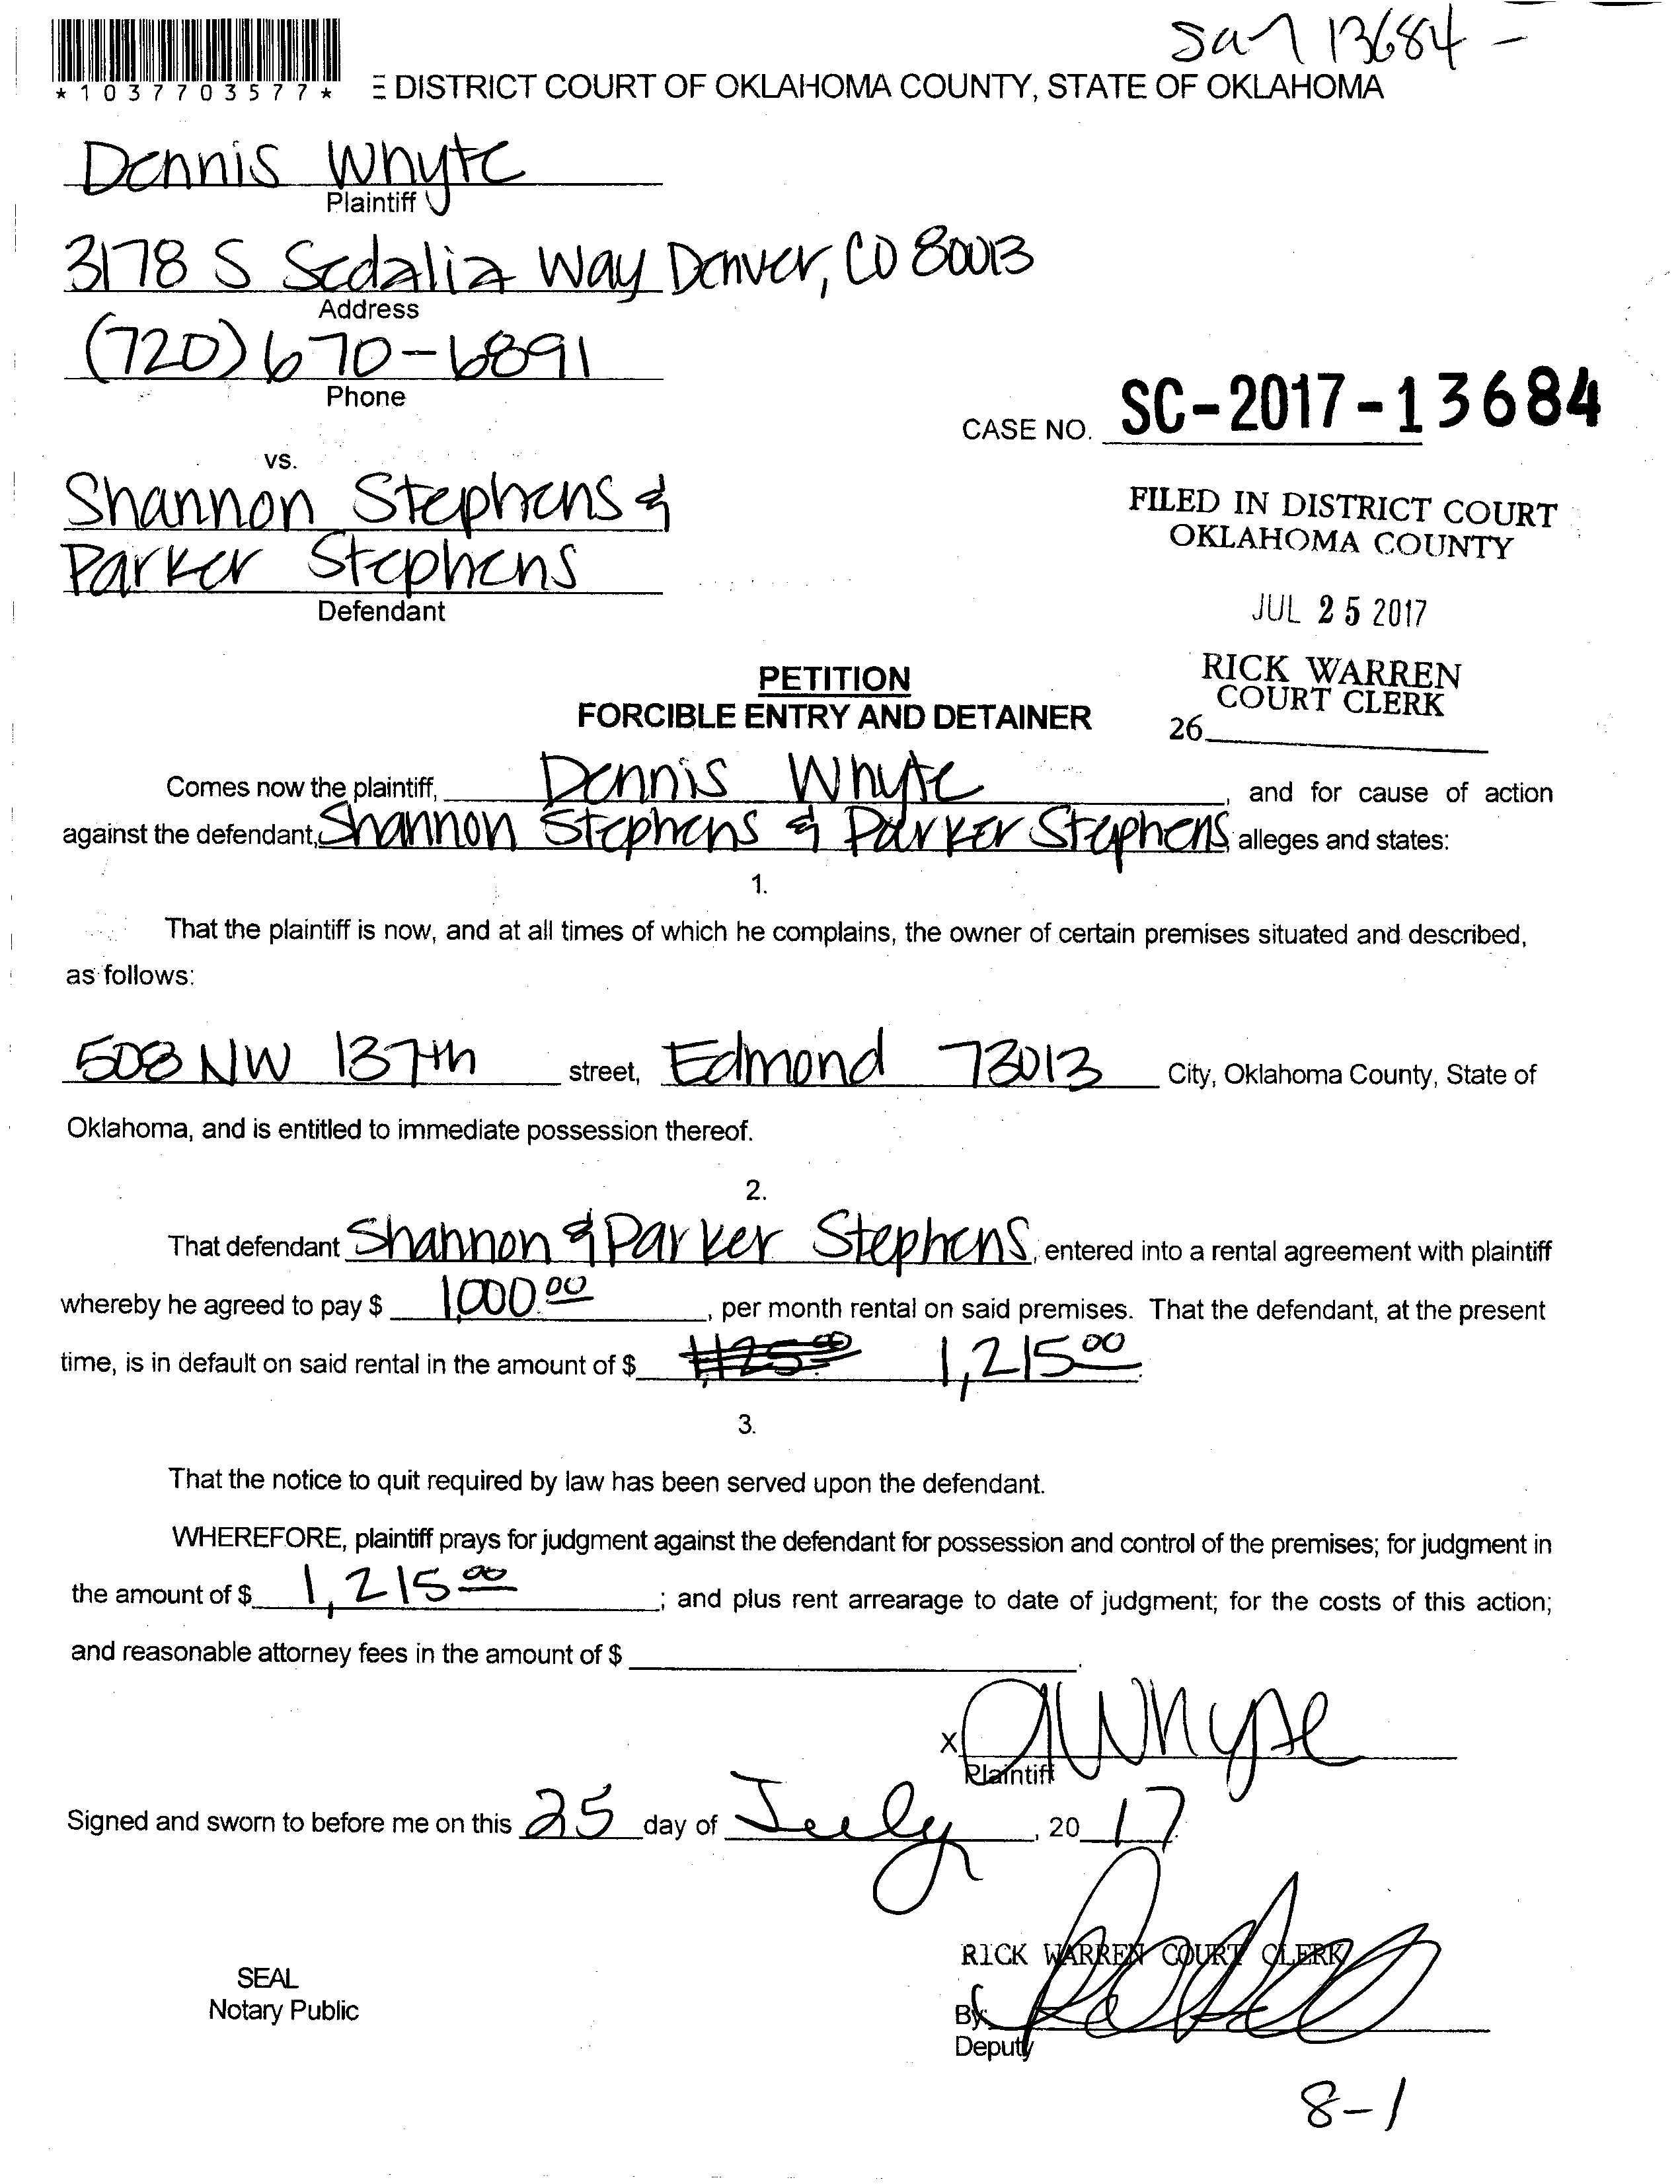 13684 -
*1037703577*
DISTRICT COURT OF OKLAHOMA COUNTY, STATE OF OKLAHOMA
Dennis Whyte
Plaintiff
3178 S Sedalia Way Denver, CO 80013
Address
(720) 670-6891
Phone
CASE NO. SC-2017-13684
vs.
Shannon Stephens &
Parker Stephens
Defendant
FILED IN DISTRICT COURT
OKLAHOMA COUNTY
JUL 25 2017
RICK WARREN
COURT CLERK
26
PETITION
FORCIBLE ENTRY AND DETAINER
Comes now the plaintiff, Dennis Whyte, and for cause of action
against the defendant, Shannon Stephens & Parker Stephens alleges and states:
1.
That the plaintiff is now, and at all times of which he complains, the owner of certain premises situated and described,
as follows:
508 NW 137th street, Edmond 73013 City, Oklahoma County, State of
Oklahoma, and is entitled to immediate possession thereof.
2.
That defendant Shannon & Parker Stephens, entered into a rental agreement with plaintiff
whereby he agreed to pay $ 1,000.00, per month rental on said premises. That the defendant, at the present
time, is in default on said rental in the amount of $ 1,215.00.
3.
That the notice to quit required by law has been served upon the defendant.
WHEREFORE, plaintiff prays for judgment against the defendant for possession and control of the premises; for judgment in
the amount of $ 1,215.00; and plus rent arrearage to date of judgment; for the costs of this action;
and reasonable attorney fees in the amount of $ .
X Whyte
Plaintiff
Signed and sworn to before me on this 25 day of July, 2017.
RICK WARREN COURT CLERK
SEAL
Notary Public
By:
Deputy
8-1